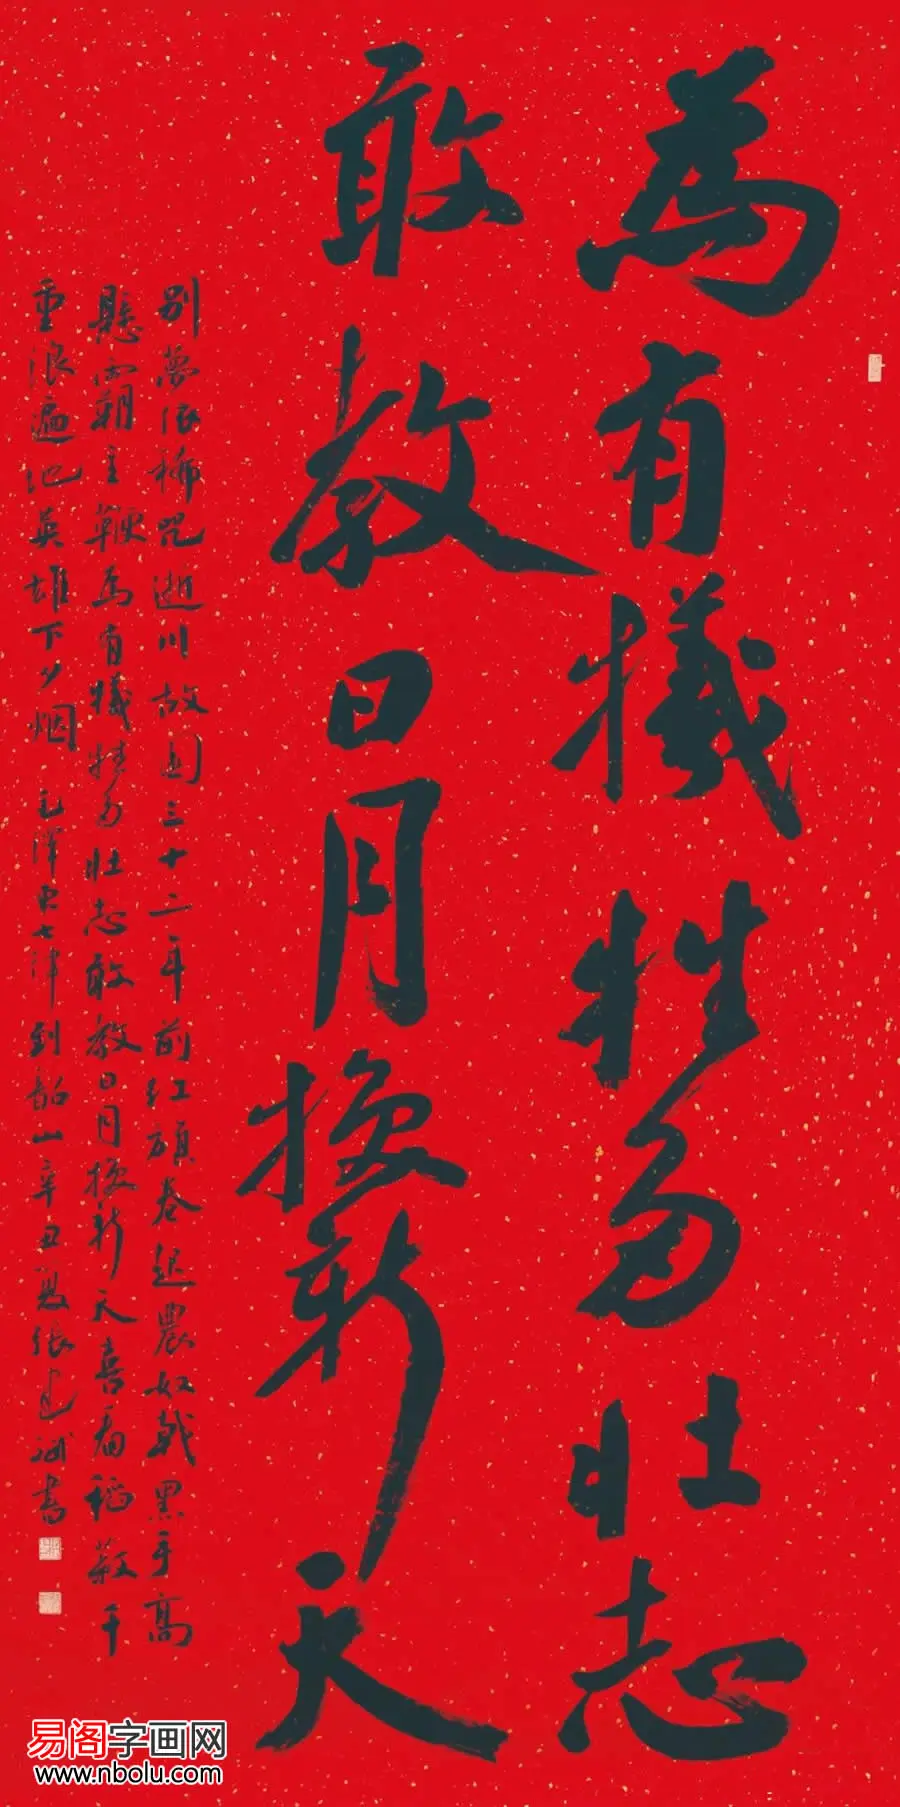 為有犧牲多壯志
敢教日月換新天
别夢依稀咒逝川故園三十二年前红旗卷起農奴戟黑手高
懸霸主鞭為有犧牲多壯志敢教日月換新天喜看稻菽千
重浪遍地英雄下夕烟 毛澤東七律到韶山辛丑夏張建書
易阁字画网
www.nbolu.com